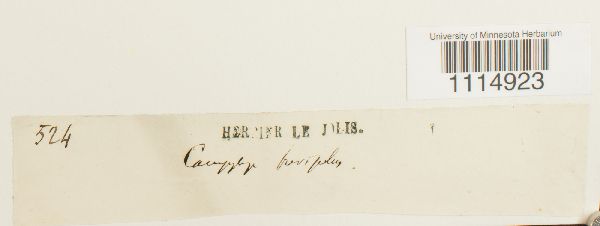 University of Minnesota Herbarium
1114923
524
HERBIER LE JOLIS.